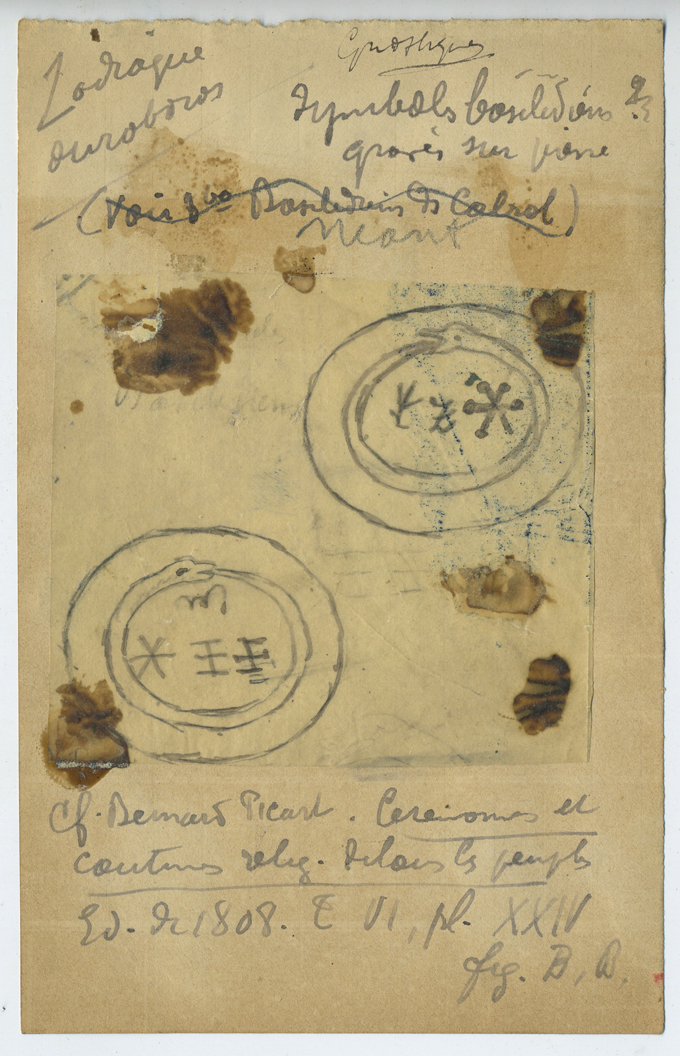 Gnostiques
Zodiaque
ouroboros
Symboles basilidiens
gravés sur pierre
(Voir Basilidiens Ds Cabrol)
Cf. Bernard Picart. Cérémonies et
coutumes relig. de tous les peuples
Ed. de 1808. T VI, pl. XXIV
fig. B, B.